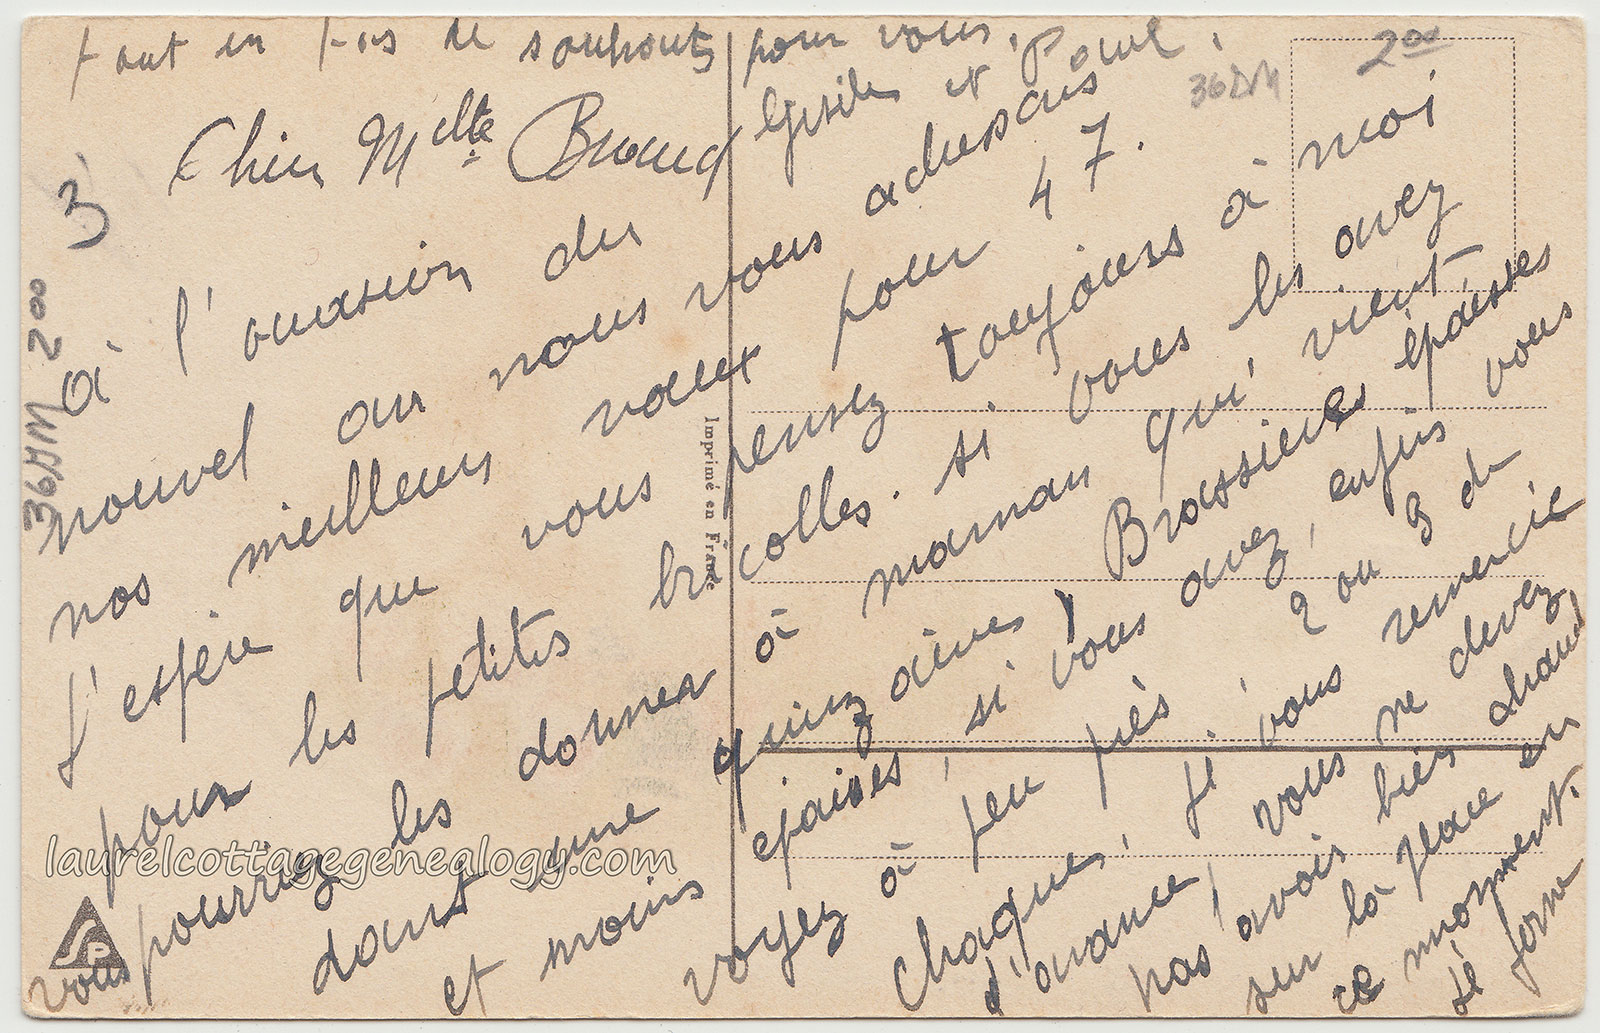 tout en tas de souhaits pour vous.
Gisèle et Paul.
36DM
2 00
Chère Melle. Braud
3
36DM 2 00
à l'occasion du
nouvel an nous vous adressons
nos meilleurs vœux pour 47.
J'espère que vous pensez toujours à moi
pour les petites bricolles. si vous les avez
vous pourriez les donner à maman qui vient
dont une quinzaine, Brassières épaisses
et moins épaises, si vous avez, enfin vous
voyez à peu près 2 ou 3 de
chaques, je vous remercie
d'avance, vous ne devez
pas avoir bien chaud
sur la place en
ce moment.
Imprimé en France
SP
laurelcottagegenealogy.com